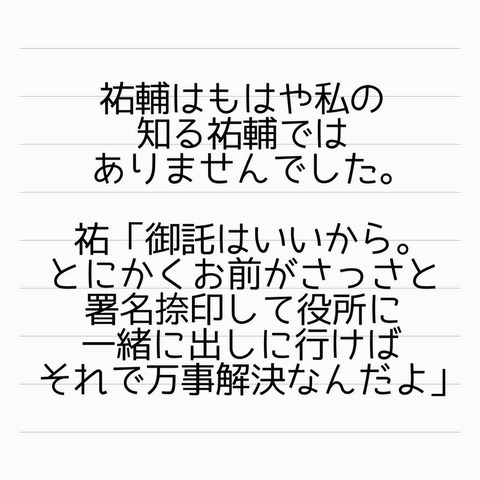 祐輔はもはや私の
知る祐輔では
ありませんでした。
祐「御託はいいから。
とにかくお前がさっさと
署名捺印して役所に
一緒に出しに行けば
それで万事解決なんだよ」